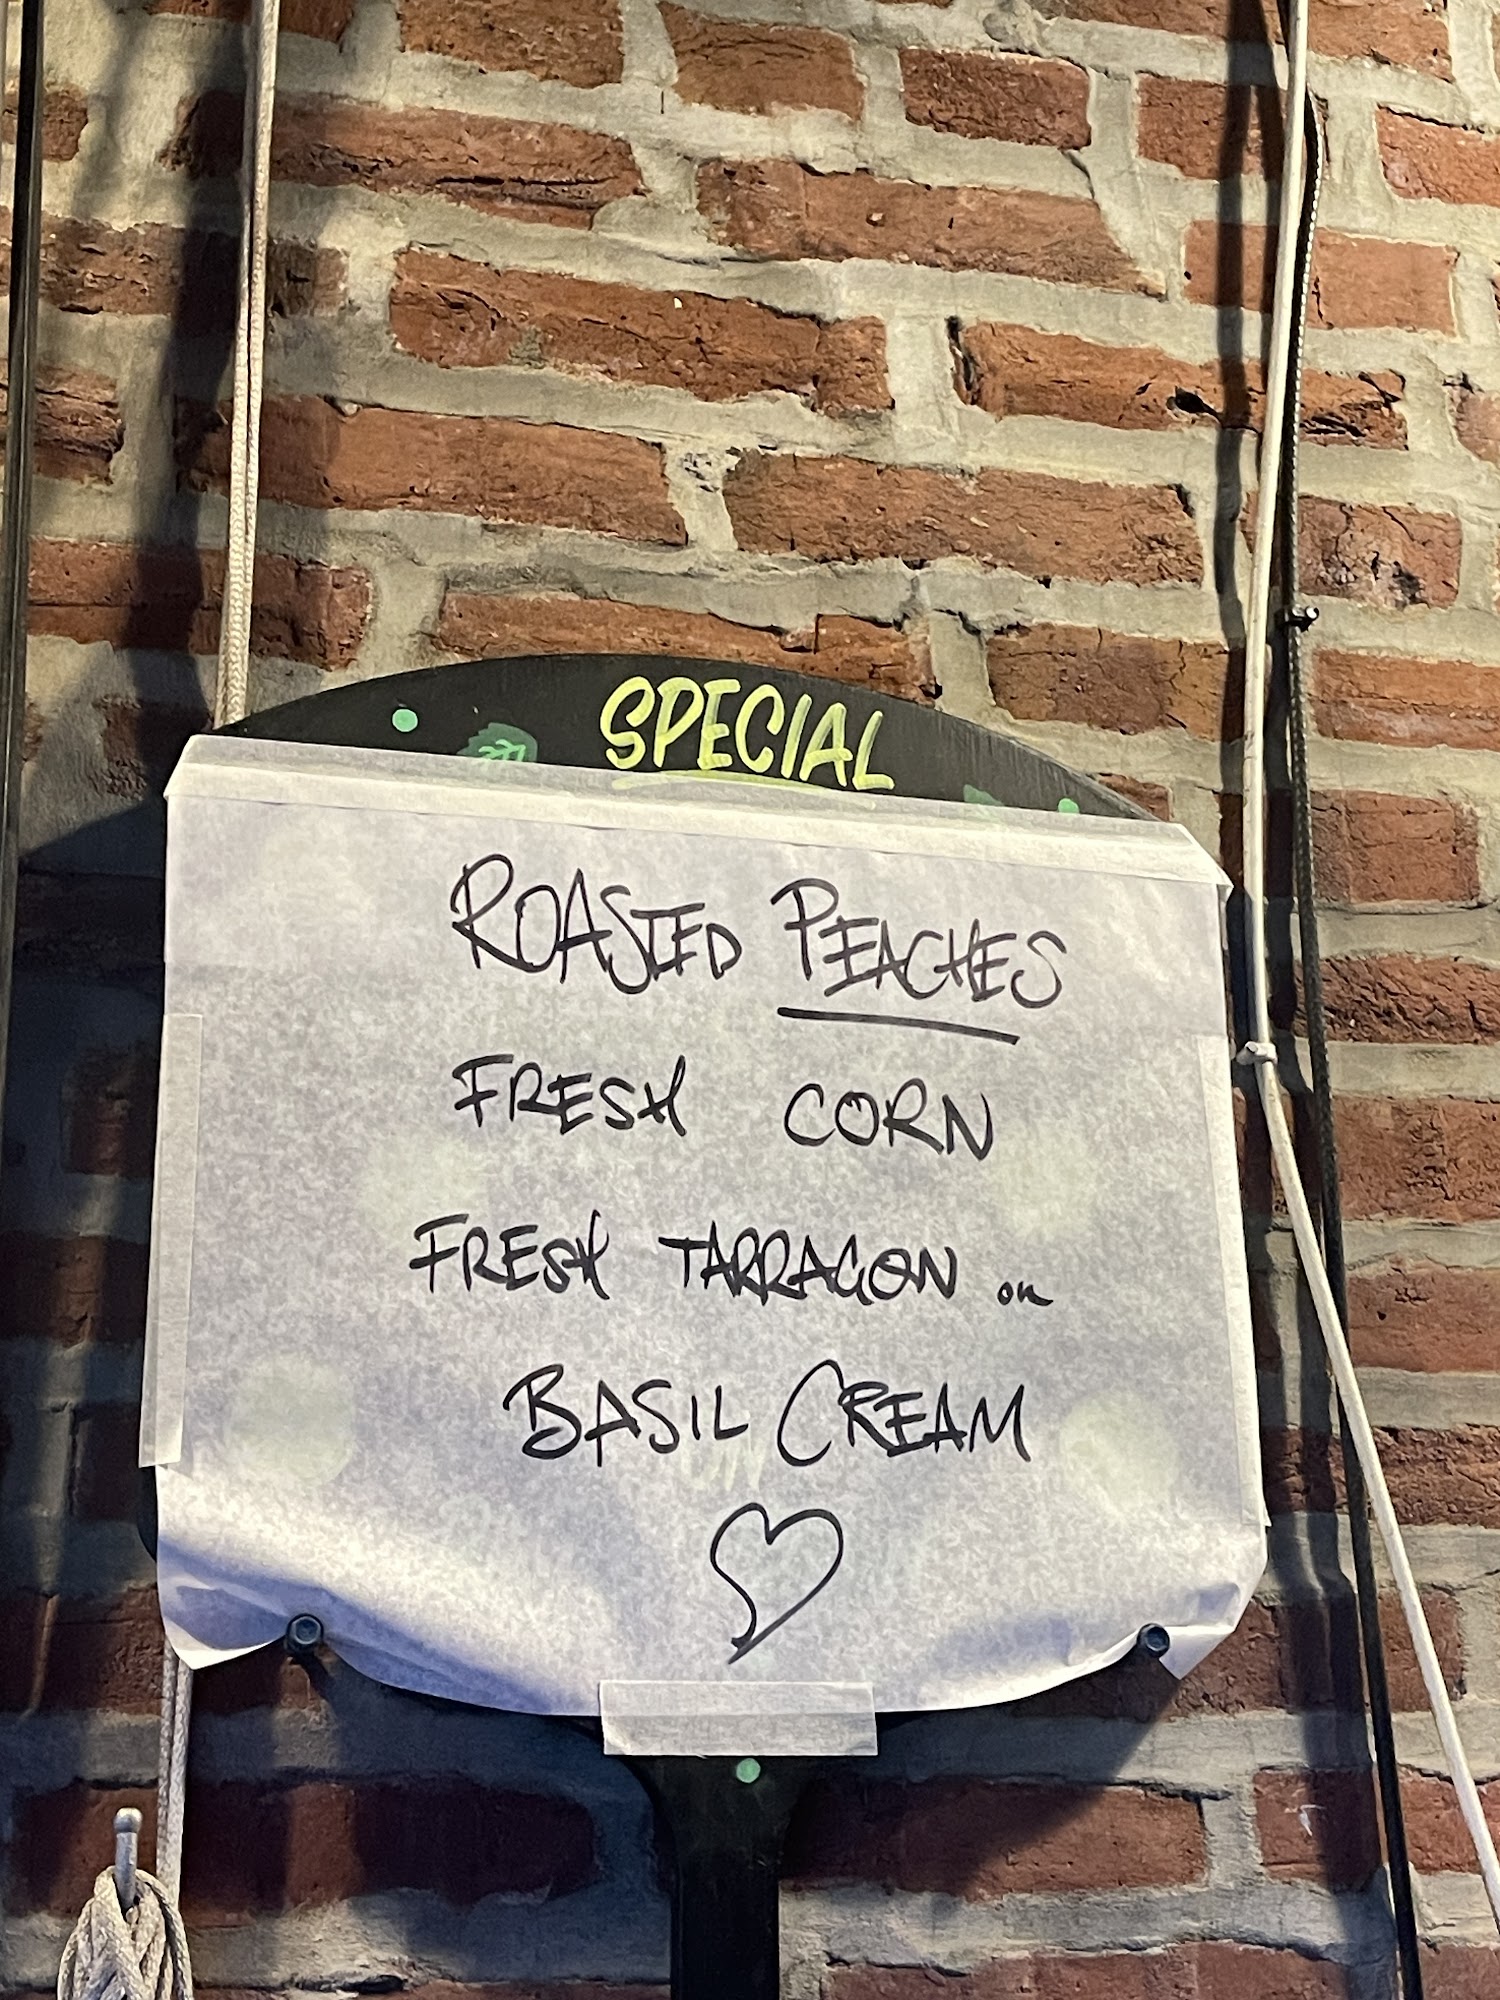 SPECIAL
ROASTED PEACHES
FRESH CORN
FRESH TARRAGON on
BASIL CREAM